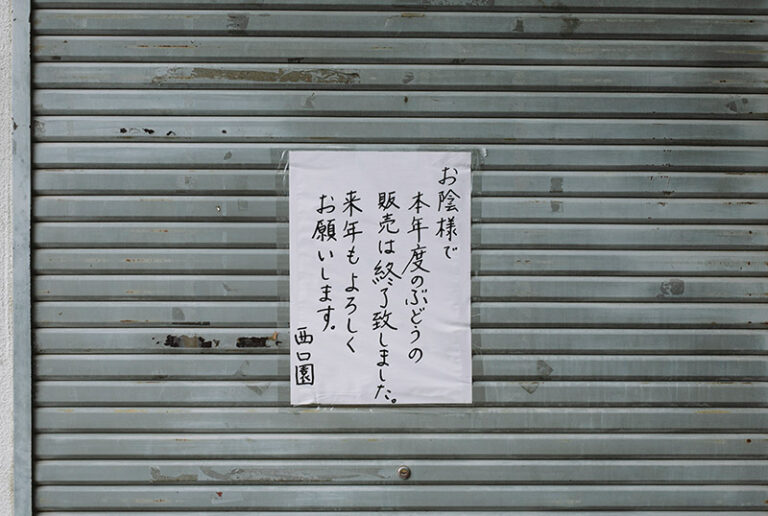 お陰様で
本年度のぶどうの
販売は終了致しました。
来年もよろしく
お願いします。
西口園